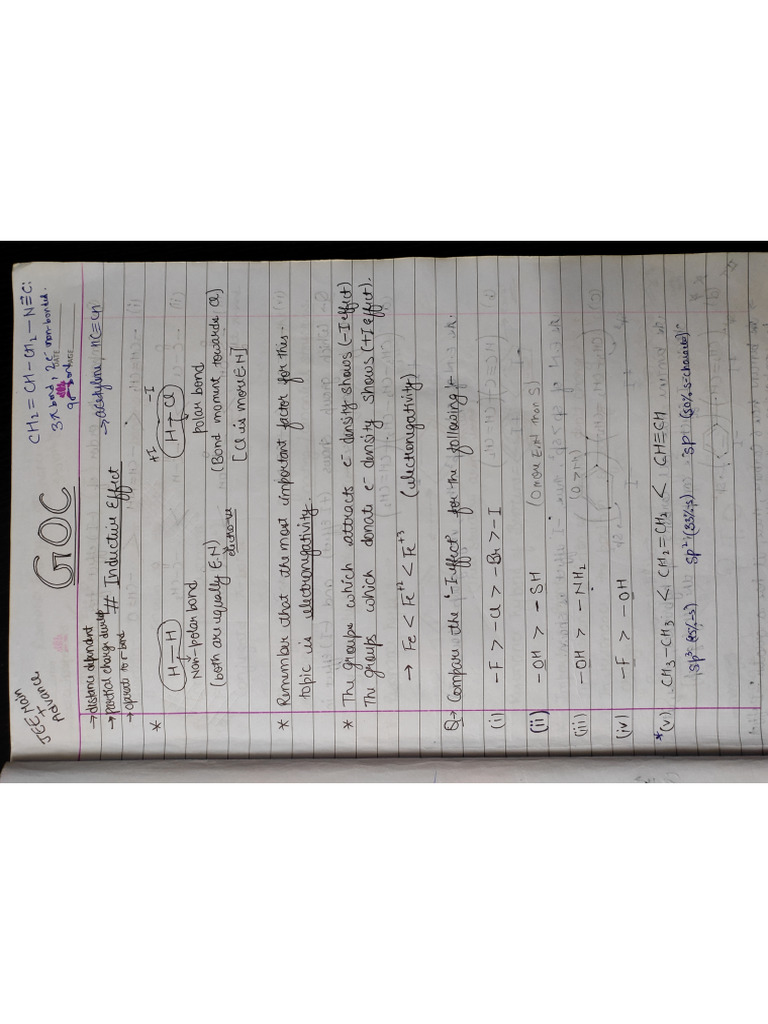 JEE Main
+
Advance
GOC
CH₂ = CH - CH₂ - N ≡ C:
3π bond, 2e⁻ non-bonded.
9σ bond
DATE
PAGE
→ distance dependent
→ partial charge
→ operate to σ bond
# Inductive Effect
→ acetylene, HC≡CH
* H-H
Non-polar bond
(both are equally E.N)
electro-ve
+I -I
H-Cl
polar bond
(Bond moment, towards Cl)
[Cl is more E.N]
* Remember that the most important factor for this
topic is electronegativity.
* The groups which attracts e⁻ density shows (-I effect)
The groups which donate e⁻ density shows (+I effect).
→ Fe < Fe⁺² < Fe⁺³ (electronegativity)
Q→ Compare the '-I effect for the following :-
(i) -F > -Cl > -Br > -I
(ii) -OH > -SH (O more E.N than S)
(iii) -OH > -NH₂ (O > N)
(iv) -F > -OH
*(v) CH₃-CH₃ < CH₂=CH₂ < CH≡CH
sp³ (25%-s) sp² (33%-s) sp (50% s-character)